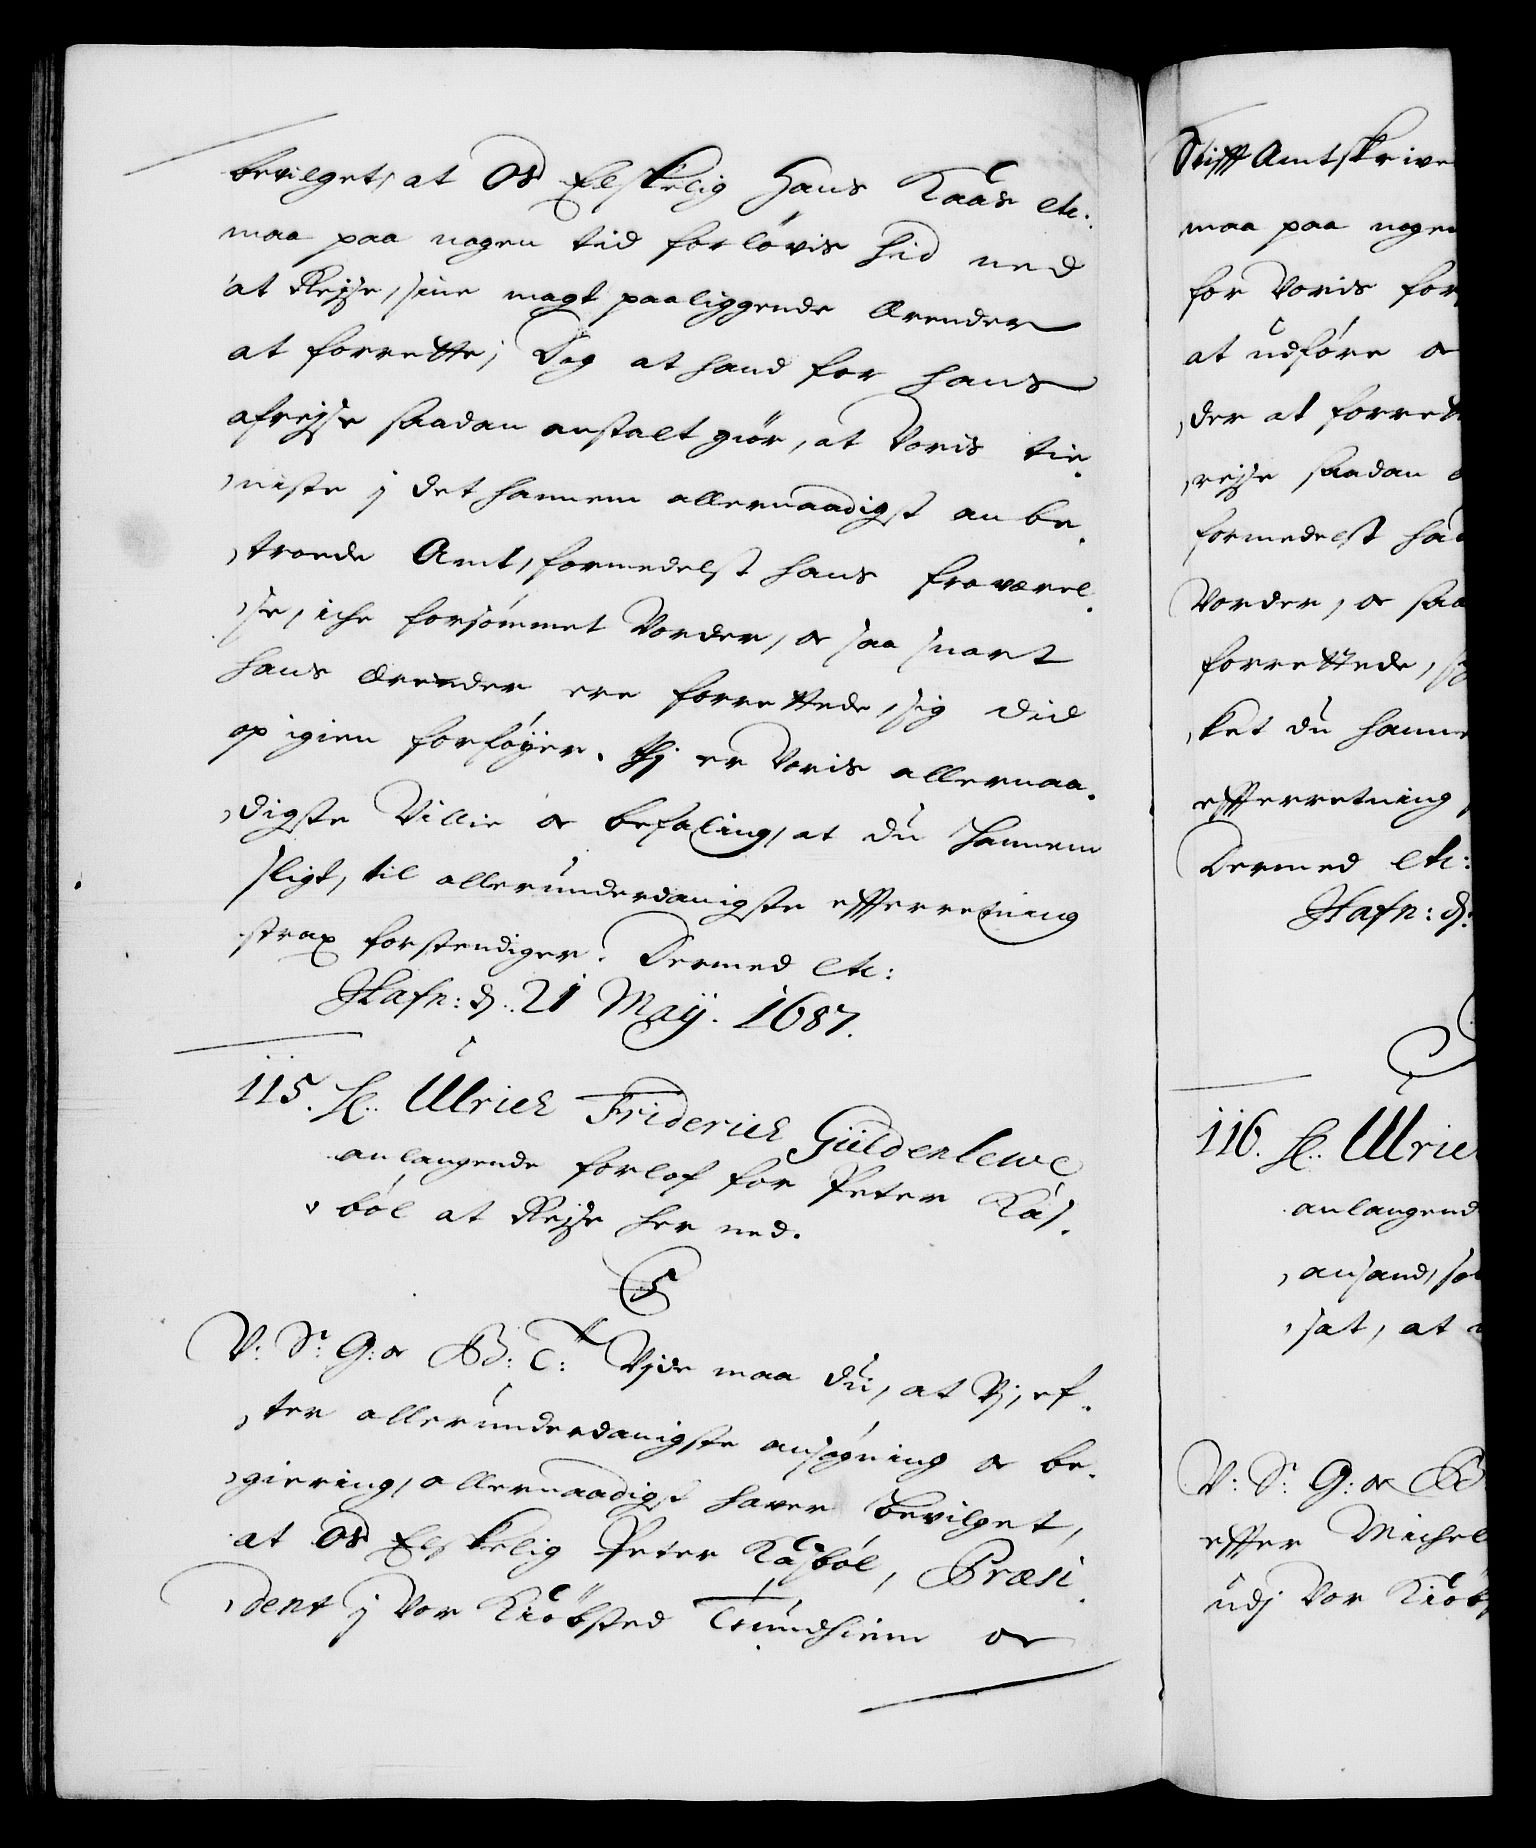 bevilget, at Os Elskelig Hans Kaas etc:
maa paa nogen tid forlövis hid ned
at Rejse, sine magt paaliggende Ærender
at forrette; Dog at hand for hans
afrejse saadan anstalt giör, at Voris tie,
,niste j det hannem allernaadigst anbe,
,troede Amt, formedelst hans fraværel,
,se, iche forsömmet Vorder, oc saa snart
hans Ærender ere forrettede, sig did
op igien forföyer. Thj er Voris allernaa,
,digste Villie oc befaling, at du hannem
sligt, til allerunderdanigste efferretning
strax forstendiger. Dermed etc:
Hafn: d. 21 Maij. 1687.
115. H: Ulrich Friderich Güldenlewe
anlangende forlof for Peter Kås,
,böl at Rejse her ned.
C5
V: S: G: oc B: T: Vjde maa du, at Vj, ef,
,ter allerunderdanigste ansögning oc be,
,giering, allernaadigst haver bevilget,
at Os Elskelig Peter Kåsböl, Præsi,
,dent j Vor Kiöbsted Trundhiem oc
Stifft Amtskrive
maa paa nogen
for Voris for
at udföre oc
,der at forrett
,rejse saadan
formedelst ha
Vorder, oc saa
forrettede, s
,ket du hanne
efferretning
Dermed etc:
Hafn: d:
116. H: Ulric
anlangend
,ansand, so
,sat, at
V: S: G: oc B
effter Michel
udj Vor Kiöb